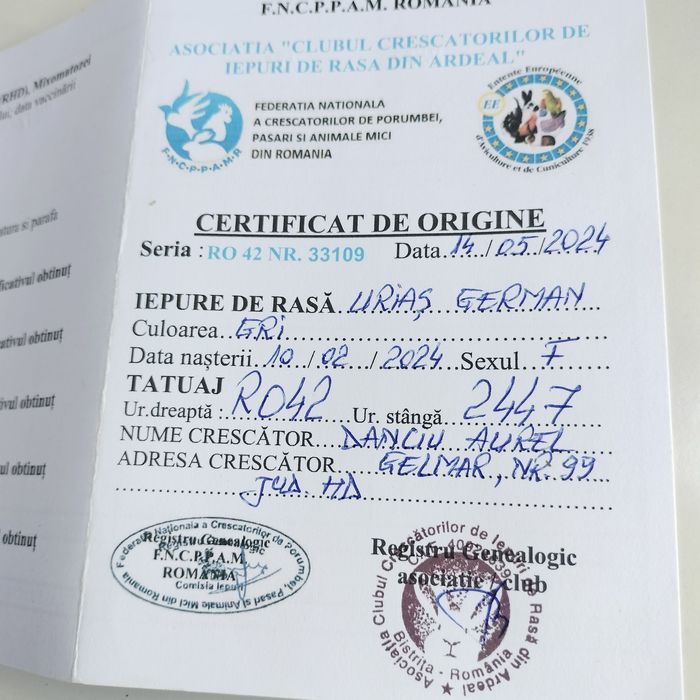 RHD), Mixomatozei
lui, data vaccinării
ficativul obținut
cativul obținut
ivul obținut
ul obținut
l obținut
F.N.C.P.P.A.M. ROMANIA
ASOCIATIA "CLUBUL CRESCATORILOR DE
IEPURI DE RASA DIN ARDEAL"
F-N-C-P-P-A-M-R
FEDERATIA NATIONALA
A CRESCATORILOR DE PORUMBEI,
PASARI SI ANIMALE MICI
DIN ROMANIA
Entente Européenne
EE
d'Aviculture et de Cuniculture 1938
CERTIFICAT DE ORIGINE
Seria : RO 42 NR. 33109 Data 14 / 05 / 2024
IEPURE DE RASĂ URIAȘ GERMAN
Culoarea GRI
Data nașterii 10 / 02 / 2024 Sexul F
TATUAJ
Ur.dreaptă : RO42 Ur. stângă 2447
NUME CRESCĂTOR DANCIU AUREL
ADRESA CRESCĂTOR GELMAR, NR. 99
JUD HD
Federatia Nationala a Crescatorilor de Porumbei, Pasari si Animale Mici din Romania
Registru Genealogic
F.N.C.P.P.A.M.
ROMANIA
Comisia Iepuri
Registru Genealogic
asociatie / club
Asociația Clubul Crescătorilor de Iepuri de Rasă din Ardeal
Bistrița - România